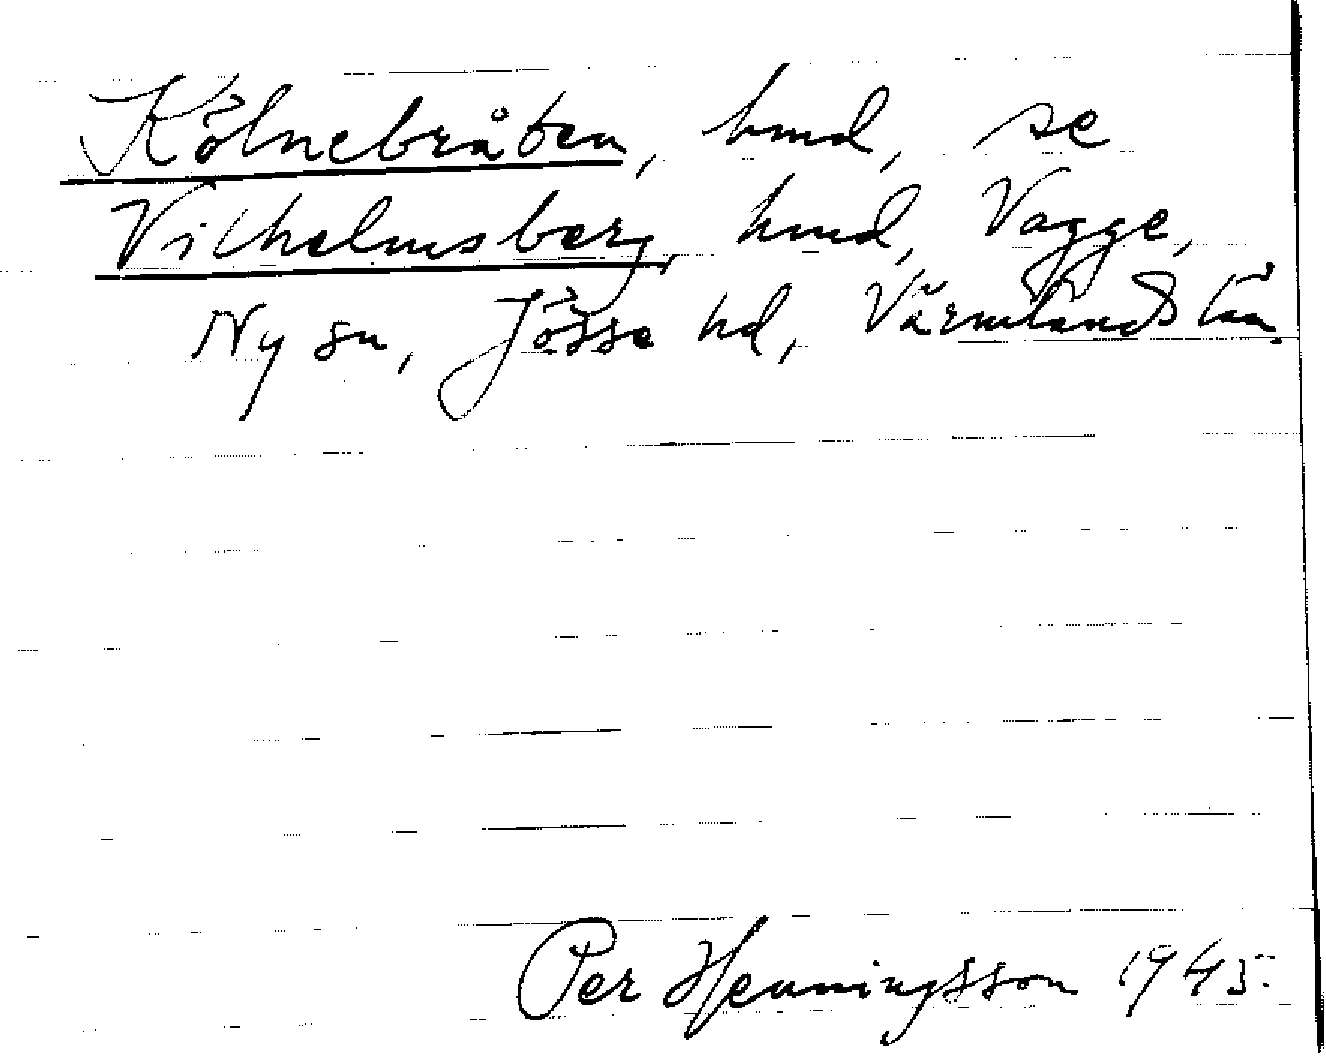 Kölnebråten, hmd, se
Vilhelmsberg, hmd, Vagge,
Ny sn, Jösse hd, Värmlands län
Per Henningsson 1945.